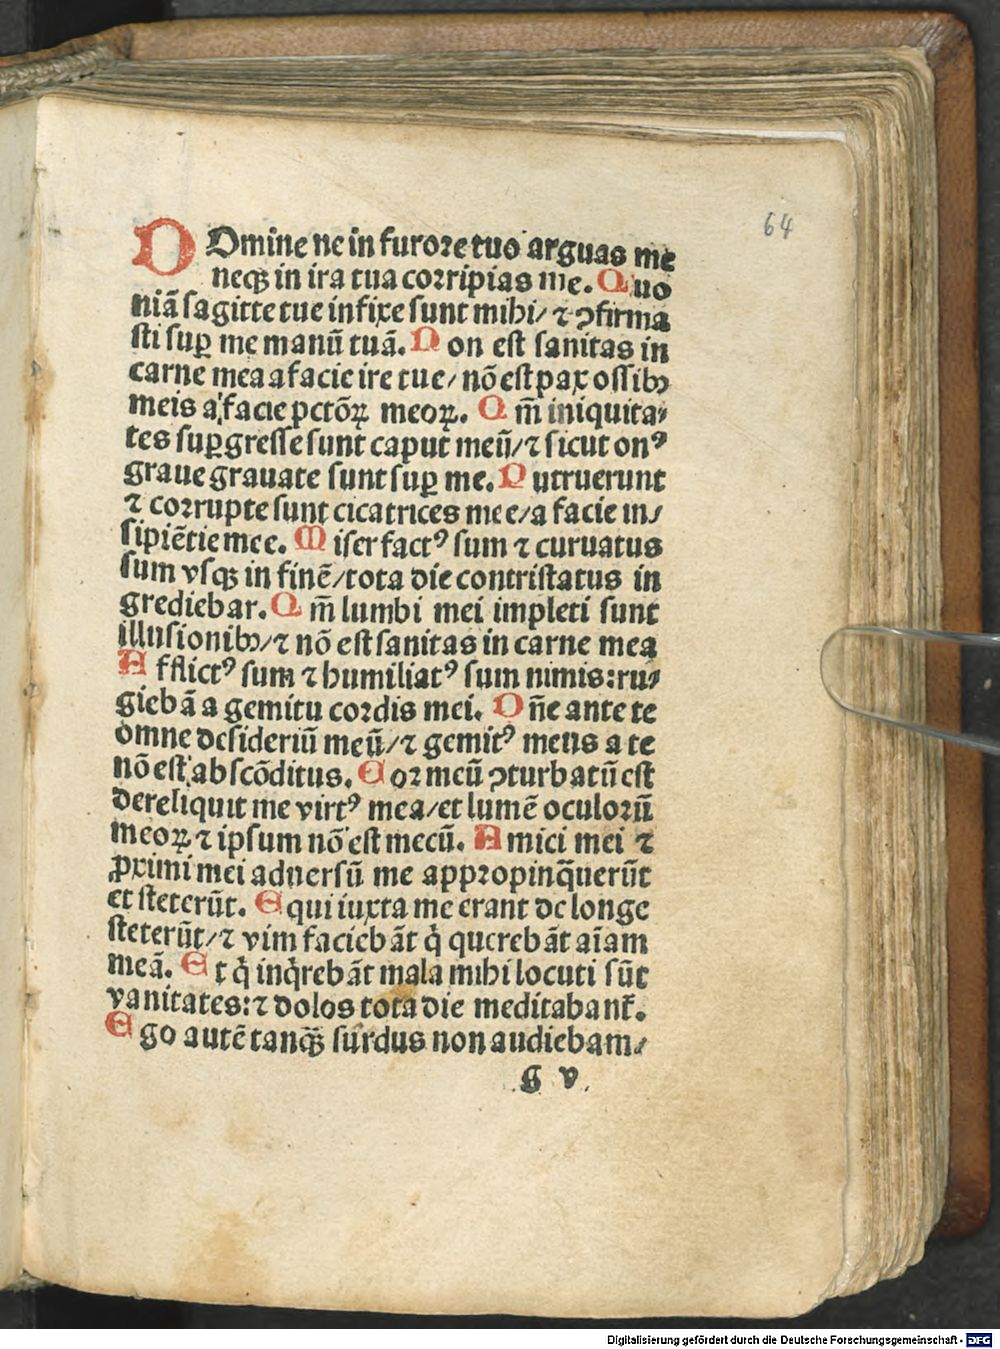 64
DOmine ne in furore tuo arguas me
neqꝫ in ira tua corripias me. Quo
niā sagitte tue infixe sunt mihi/ ⁊ ꝯfirma
sti suꝑ me manū tuā. Non est sanitas in
carne mea a facie ire tue/ nō est pax ossibꝰ
meis a facie pctōꝝ meoꝝ. Qm̄ iniquita⸗
tes suꝑgresse sunt caput meū/ ⁊ sicut onꝰ
graue grauate sunt suꝑ me. Putruerunt
⁊ corrupte sunt cicatrices mee/ a facie in/
sipiētie mee. Miser factꝰ sum ⁊ curuatus
sum vsqꝫ in finē/ tota die contristatus in
grediebar. Qm̄ lumbi mei impleti sunt
illusionibꝰ/ ⁊ nō est sanitas in carne mea
Afflictꝰ sum ⁊ humiliatꝰ sum nimis: ru⸗
giebā a gemitu cordis mei. Dn̄e ante te
omne desideriū meū/ ⁊ gemitꝰ meus a te
nō est abscōditus. Cor meū ꝯturbatū est
dereliquit me virtꝰ mea/ et lumē oculorū
meoꝝ ⁊ ipsum nō est mecū. Amici mei ⁊
ꝓximi mei aduersū me appropinq̄uerūt
et steterūt. Et qui iuxta me erant de longe
steterūt/ ⁊ vim faciebāt q̇ querebāt aīam
meā. Et q̇ inq̇rebāt mala mihi locuti sūt
vanitates: ⁊ dolos tota die meditabant̄.
Ego autē tanqꝫ̄ surdus non audiebam/
g v
Digitalisierung gefördert durch die Deutsche Forschungsgemeinschaft - DFG